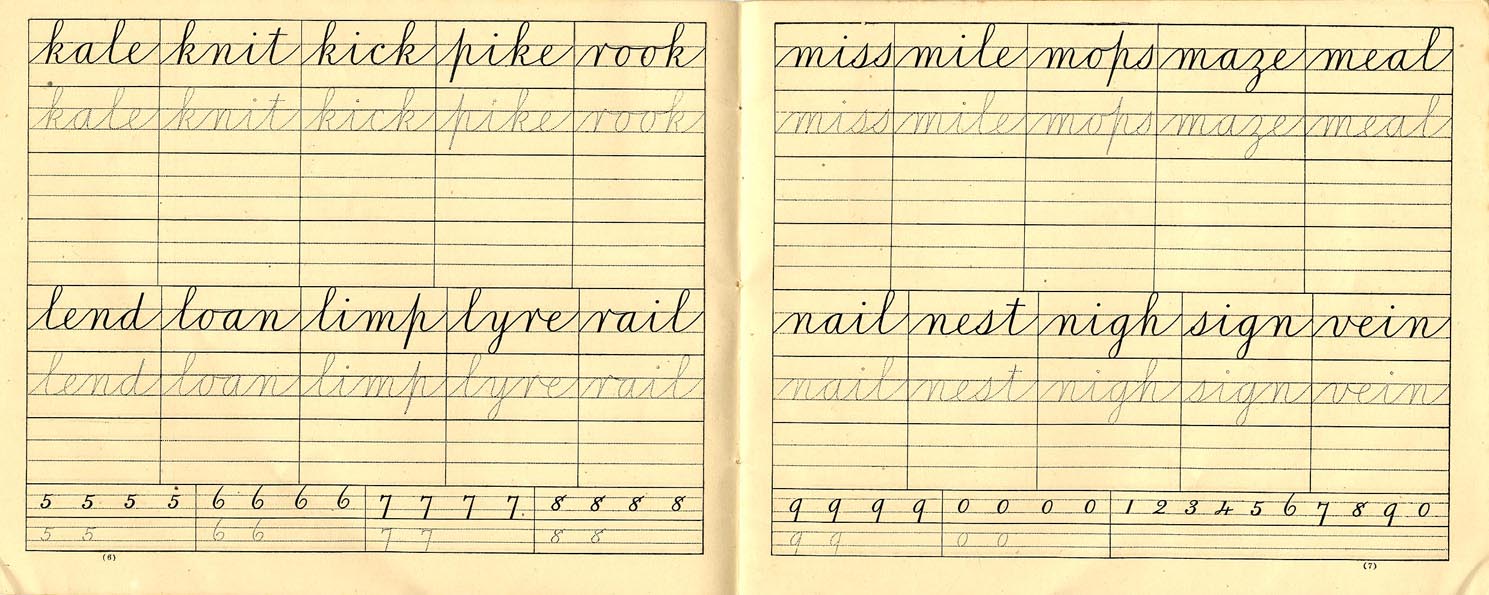 kale knit kick pike rook
kale knit kick pike rook
lend loan limp lyre rail
lend loan limp lyre rail
5 5 5 5 6 6 6 6 7 7 7 7 8 8 8 8
5 5 6 6 7 7 8 8
(6)
miss mile mops maze meal
miss mile mops maze meal
nail nest nigh sign vein
nail nest nigh sign vein
9 9 9 9 0 0 0 0 1 2 3 4 5 6 7 8 9 0
9 9 0 0
(7)